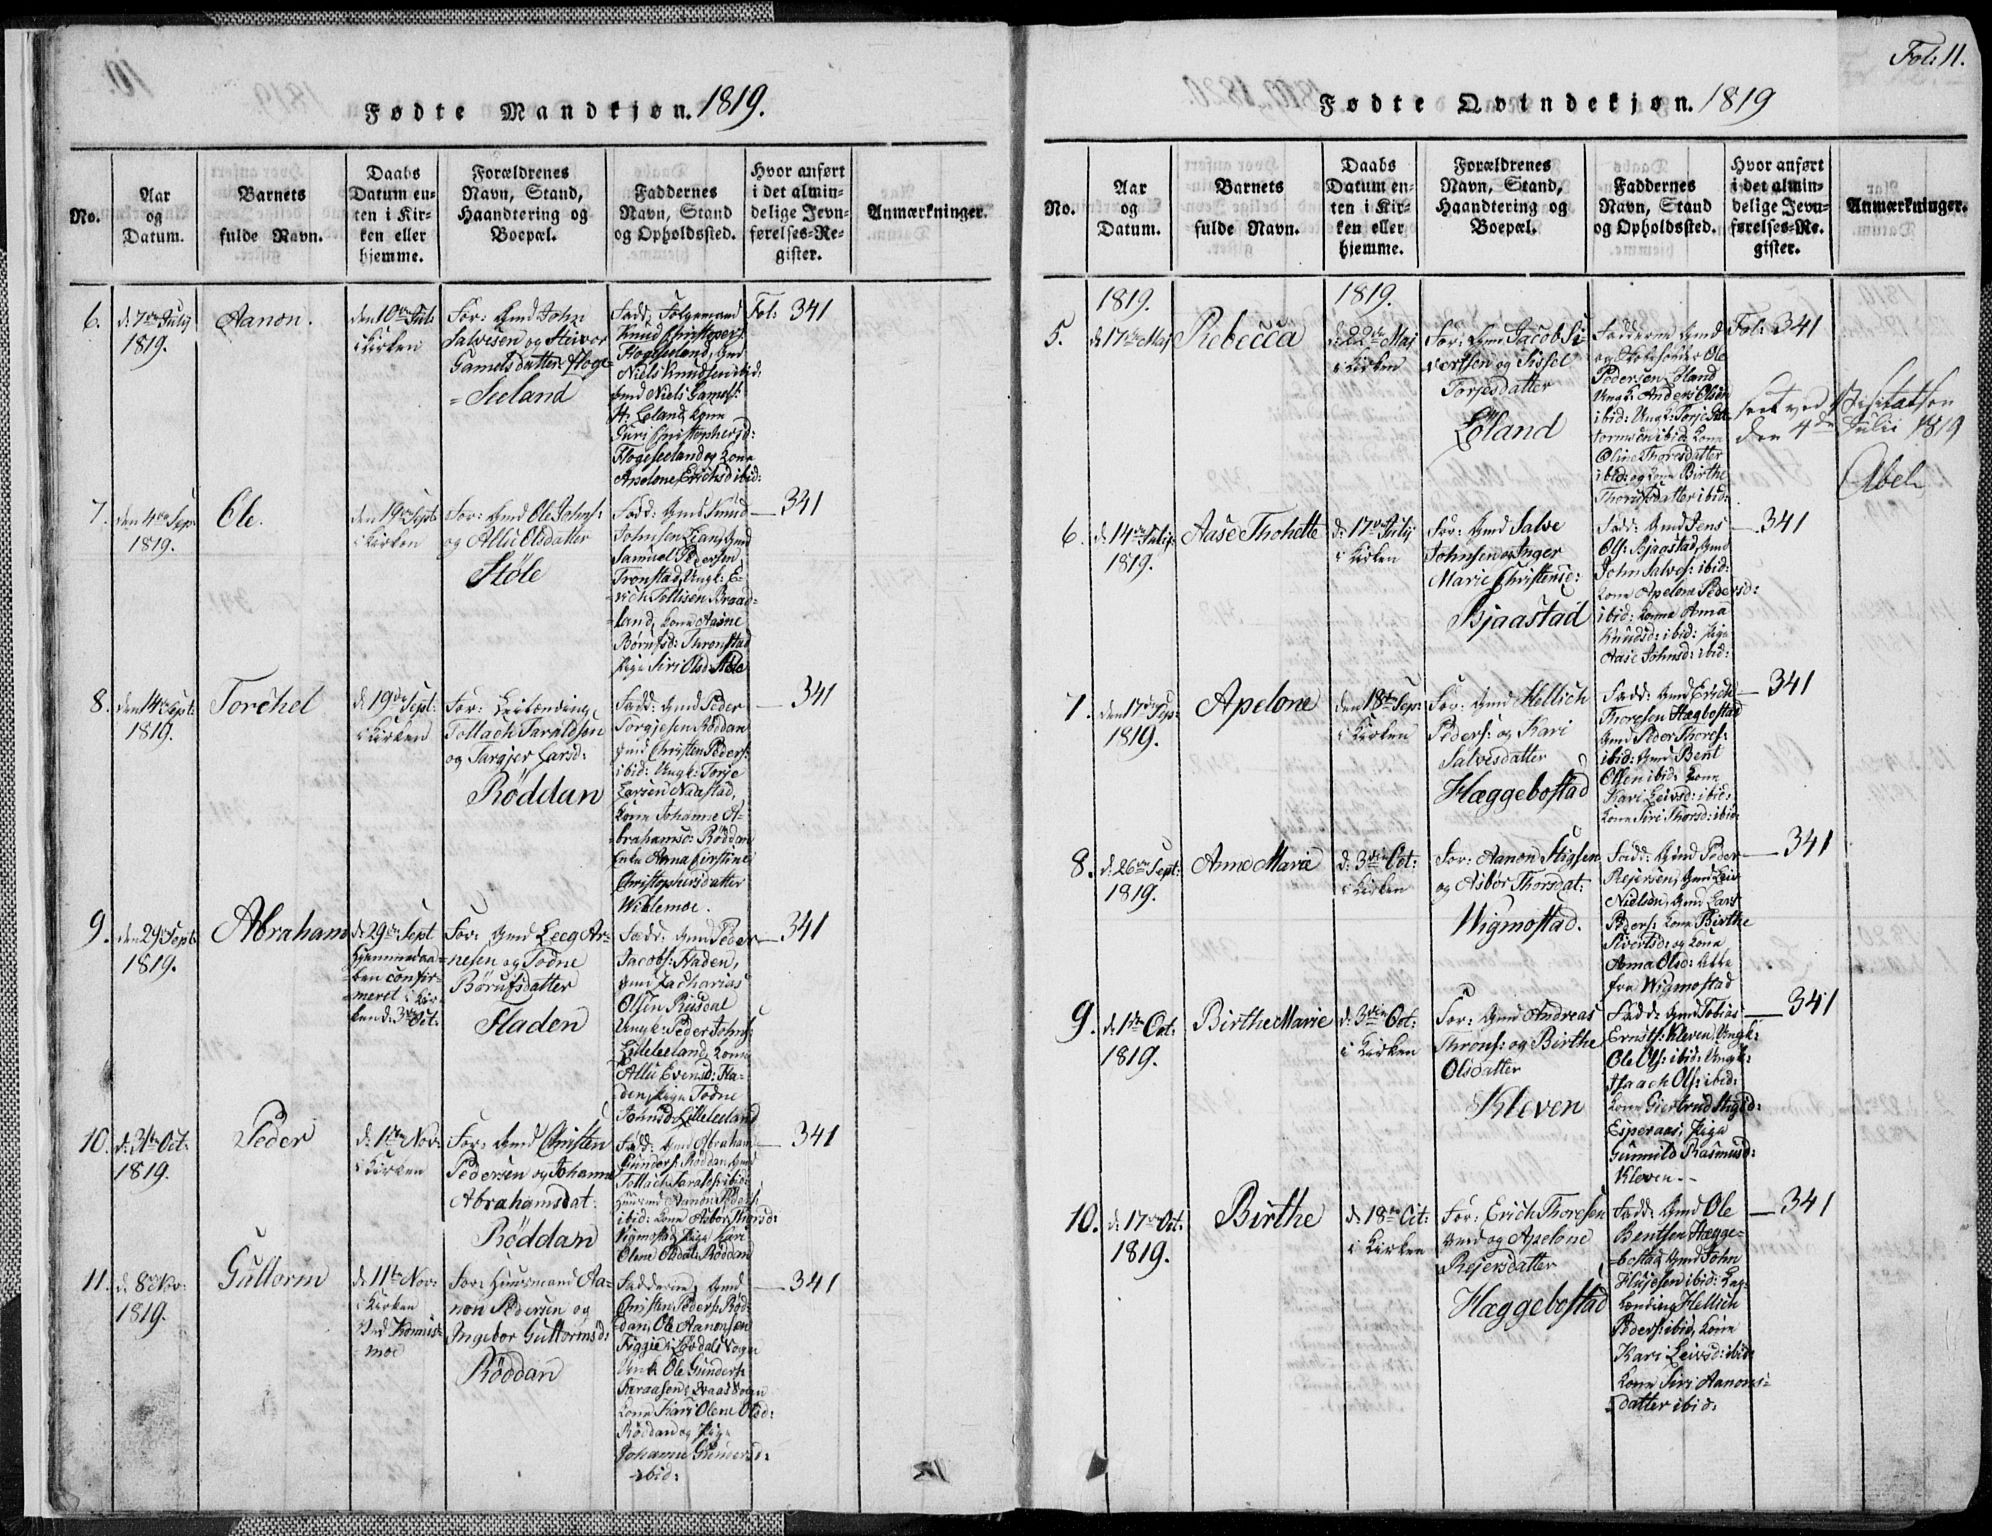 Fødte Mandkjøn. 1819.
No.
Aar
og
Datum.
Barnets
fulde Navn.
Daabs
Datum en-
ten i Kir-
ken eller
hjemme.
Forældrenes
Navn, Stand,
Haandtering og
Boepæl.
Faddernes
Navn, Stand
og Opholdssted.
Hvor anført
i det almin-
delige Jevn-
førelses-Re-
gister.
Anmærkninger.
6.
d: 7de July
1819.
Aanon.
den 10de Jul:
i Kirken
For: Gmd John
Salvesen og Steivor
Gamelsdatter Høge-
=Seeland
Fadd:
Knud Christophers:
Høgseeland, Gmd
Niels Knudsen ibid:
Gmd Niels Gamels:
H: Leland, Kone
Guri Christophersd:
Høgeseeland og Kone
Apelone Erichsd ibid:
Fol: 341
7.
den 4de Sep:
1819.
Ole.
den 19de Sept:
i Kirken
For: Gmd Ole Johns:
og Allis Elisdatter
Støle
Fadd: Gmd Knud
Johnsen Lian, Gmd
Samuel Pedersen
Tronstad, Ungk: E-
rich Tollisen Braad-
land, Kone Aasne
Børufsd: Thronstad
Pige Siri Olsd: Støle
341
8.
den 14de Sept:
1819.
Torchel
d: 19de Sept:
i Kirken
For: Leilænding
Tollach Taraldsen
og Targjer Larsd:
Røddan
Fadd: Gmd Peder
Torgjesen Røddan
Gmd Christen Peders:
ibid: Ungk: Torje
Larsen Naastad,
Kone Johanne A-
brahamsd: Røddan
Enke Anna Kirstine
Christophersdatter
Wiblemoe.
341
9.
den 29de Sept:
1819.
Abraham
d: 29de Sept
hjemmedaa-
ben confir-
meret i Kir-
ken d: 3die Oct:
For: Gmd Leeg Ar-
nesen og Todne
Børufsdatter
Fladen
Fadd: Gmd Peder
Jacobs: Haden,
Gmd Zacharias
Olsen Riisdal
Ungk: Peder Johns:
Lilleleeland, Kone
Allis Evensd: Fla-
den, Pige Todne
Johnsd: Lilleleeland
341
10.
d: 31te Oct:
1819.
Peder
d: 1ste Nov:
i Kirken
For: Gmd Christen
Pedersen og Johanne
Abrahamsdat:
Røddan
Fadd: Gmd Abraham
Gunders: Røddan, Gmd
Tollach Taralds: ibid:
Huusmd Aanon Peders:
ibid: Kone Asbor Thorsd:
Vigmostad, Pige Kari
Olene Olsdat: Røddan
341
11.
d: 8de Nov:
1819.
Guttorm
d: 11te Nov:
i Kirken
ved Konsis-
moe
For: Huusmand Aa-
non Pedersen og
Ingebor Guttormsd:
Røddan
Fadderne: Gmd
Christen Peders: Rød-
dan, Ole Aanonsen
Ungk Ole Gunders:
Kone Kari Olene Olsd:
Røddan og Pige
Johanne Gundersd:
ibid:
341
Fol: 11.
Fødte Qvindekjøn. 1819
No.
Aar
og
Datum.
Barnets
fulde Navn.
Daabs
Datum en-
ten i Kir-
ken eller
hjemme.
Forældrenes
Navn, Stand,
Haandtering og
Boepæl.
Faddernes
Navn, Stand
og Opholdssted.
Hvor anført
i det almin-
delige Jevn-
førelses-Re-
gister.
Anmærkninger.
5.
1819.
d: 17de Maj
Rebecca
1819.
d: 22de Maj
i Kirken
For: Gmd Jacob Si-
vertsen og Sissel
Torjesdatter
Løland
Fadderne Gmd
og Skoleholder Ole
Pedersen Løland
Ungk: Anders Olsen
ibid: Ungk: Torje Gut-
tormsen ibid: Kone
Oline Thoresdatter
ibid: og Kone Birthe
Thorisdatter ibid:
Fol: 341
Seet ved Visitatsen
den 4de Julii 1819
Abel
6.
d: 14de Julij
1819.
Aase Tholette
d: 17de Julij
i Kirken
For: Gmd Salve
Johnsen og Inger
Marie Christense:
Bjaastad
Fadd: Gmd Jens
Ols: Bjaastad, Gmd
John Salves: ibid:
Kone Apelone Pedersd:
ibid: Kone Anna
Knudsd: ibid: Pige
Aase Johnsd: ibid:
341
7.
den 17de Sep:
1819.
Apelone
den 18de Sep:
i Kirken
For: Gmd Hellich
Peders: og Kari
Salvesdatter
Hæggebostad
Fadd: Gmd Erich
Thoresen Hægbostad
Gmd Peder Thores:
ibid: Gmd Bent
Olsen ibid: Kone
Kari Leivsd: ibid:
Kone Siri Thorsd: ibid:
341
8.
d: 26de Sept:
1819.
Anne Marie
d: 3die Oct:
i Kirken
For: Aanon Stigsen
og Asbor Thorsdat:
Wigmostad.
Fadd: Gmd Peder
Rejersen, Gmd Leiv
Nielsen, Gmd Lars
Peders: Kone Birthe
Sivertsd: og Kone
Anna Olsd: Alle
fra Wigmostad
341
9.
d: 1ste Oct:
1819.
Birthe Marie
d: 3die Oct:
i Kirken
For: Gmd Andreas
Throns: og Birthe
Olsdatter
Kleven
Fadd: Gmd Tobias
Ernsts: Kleven, Ungk:
Ole Ols: ibid: Ungk:
Isaach Ols: ibid:
Kone Giertrud Stigsd:
Esperaas, Pige
Gunnild Rasmusd:
Kleven -
341
10.
d: 17de Oct:
1819.
Birthe
d: 18de Oct:
i Kirken
For: Erich Thoresen
Gmd og Apelone
Rejersdatter
Hæggebostad
Fadd: Gmd Ole
Bentsen Hægge-
bostad, Gmd John
ibid:
Hellich
Peders: ibid, Kone
Kari Leivsd: ibid:
Kone Siri Aanons-
datter ibid:
341